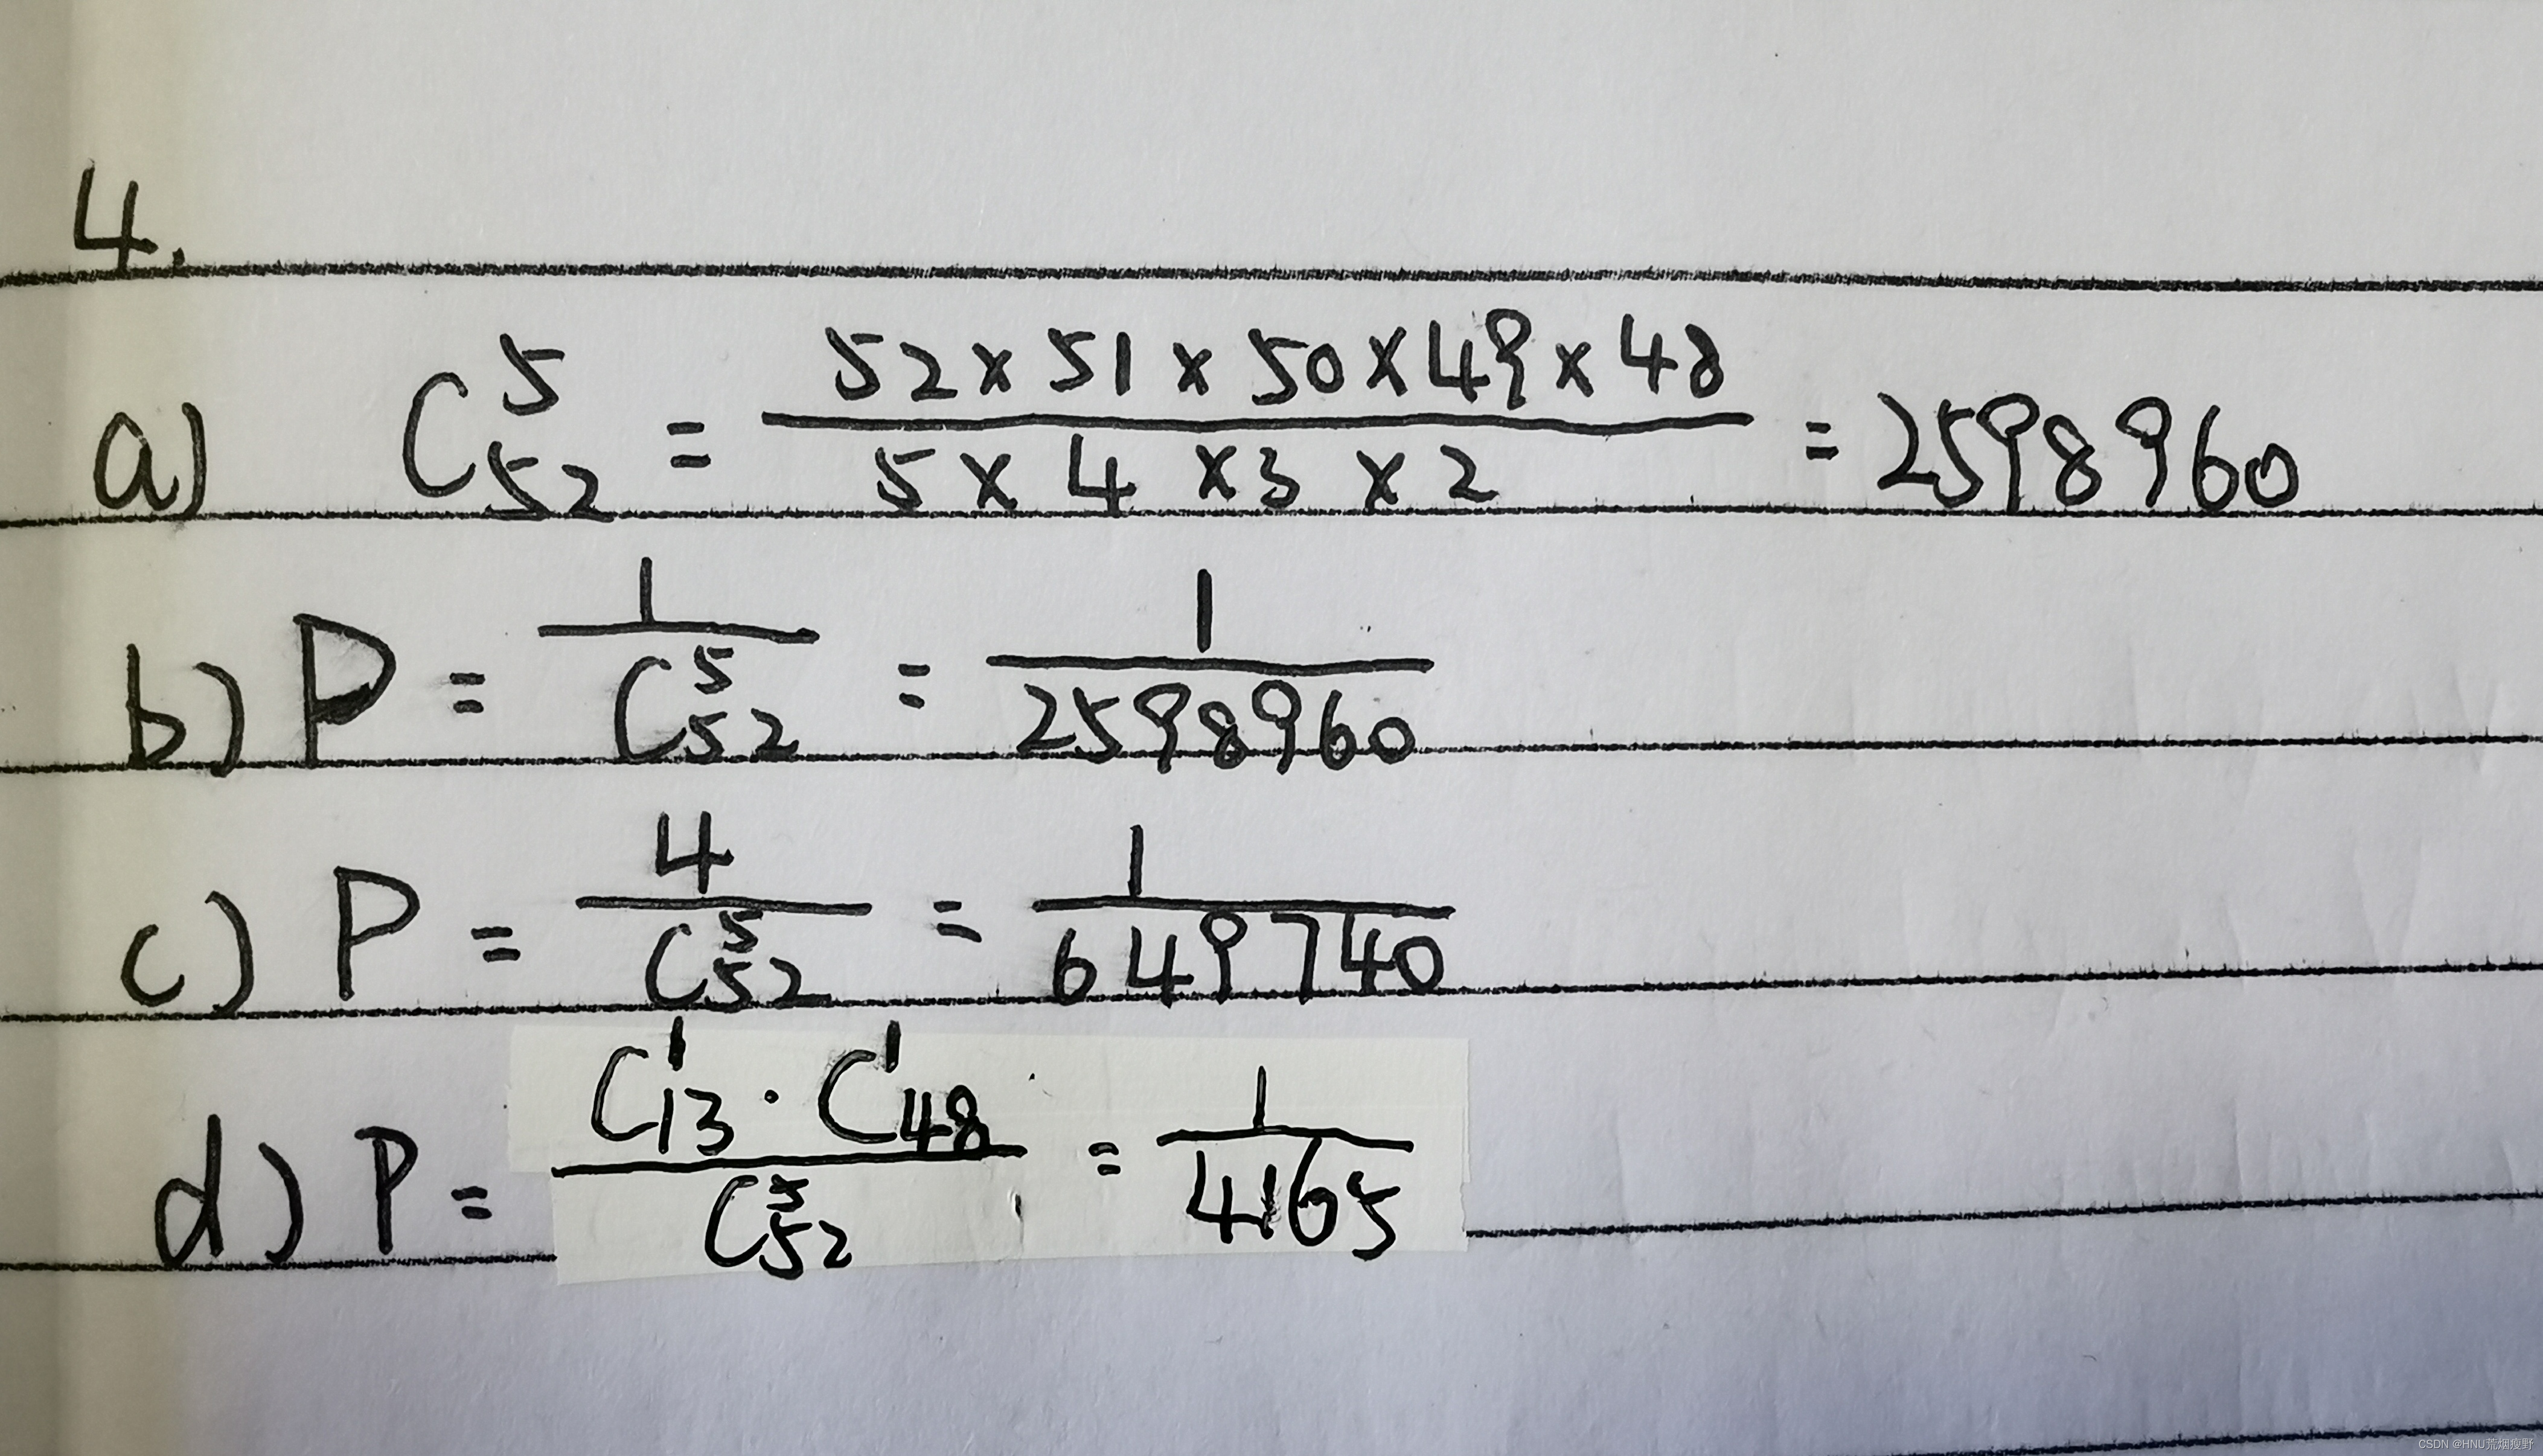 4.
a) C_{52}^{5} = \frac{52×51×50×49×48}{5×4×3×2} = 2598960
b) P = \frac{1}{C_{52}^{5}} = \frac{1}{2598960}
c) P = \frac{4}{C_{52}^{5}} = \frac{1}{649740}
d) P = \frac{C_{13}^{1} \cdot C_{48}^{1}}{C_{52}^{5}} = \frac{1}{4165}
CSDN @HNU荒烟瘦野